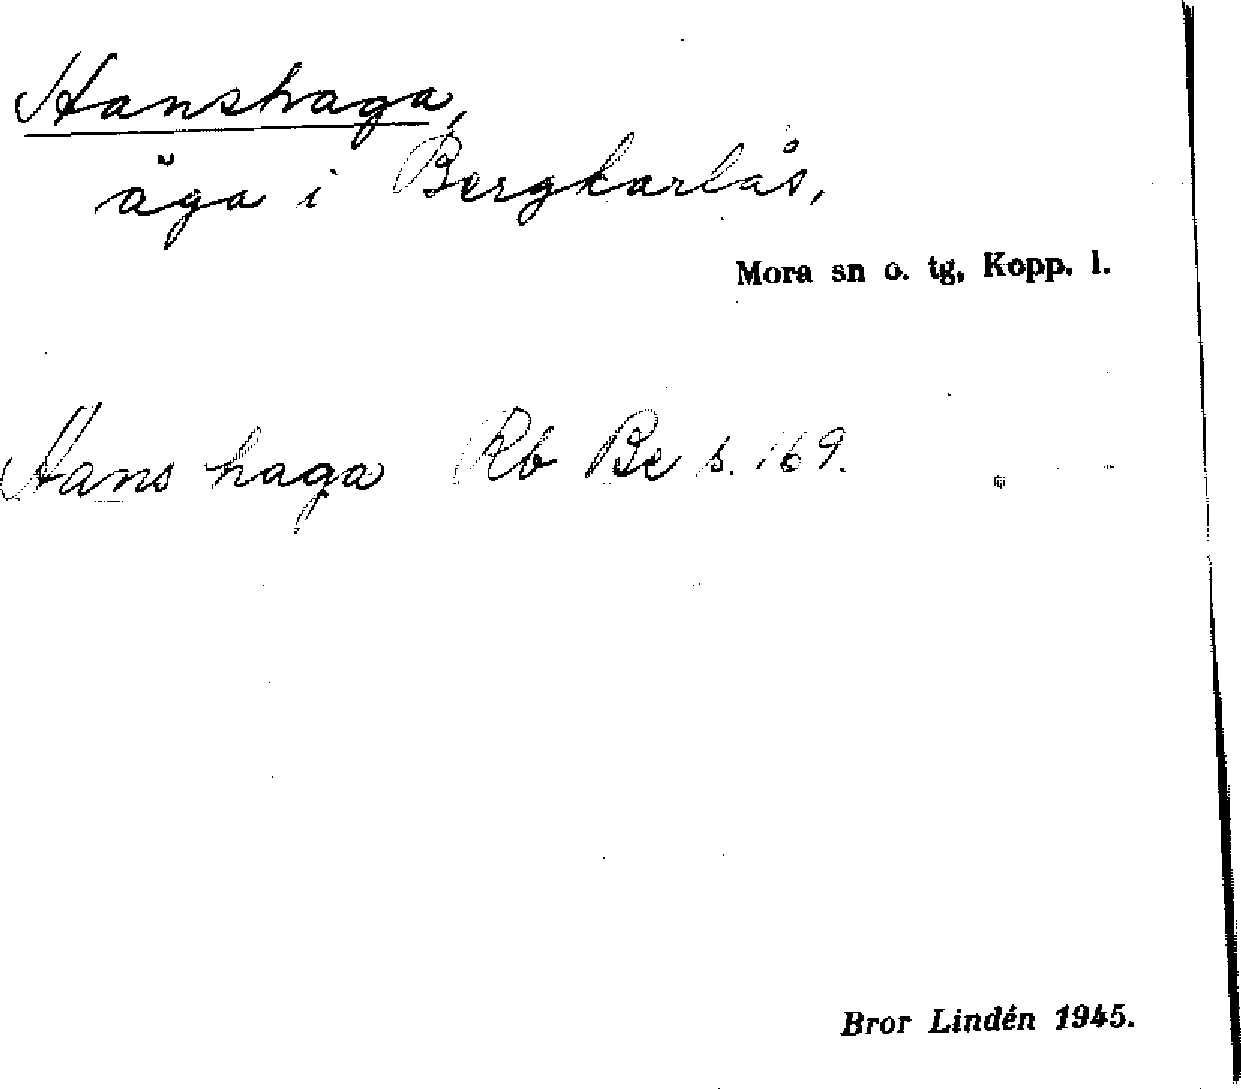 Hanshaga,
äga i Bergkarlås,
Mora sn o. tg, Kopp. l.
Hans haga Rb Be s. 169.
Bror Lindén 1945.